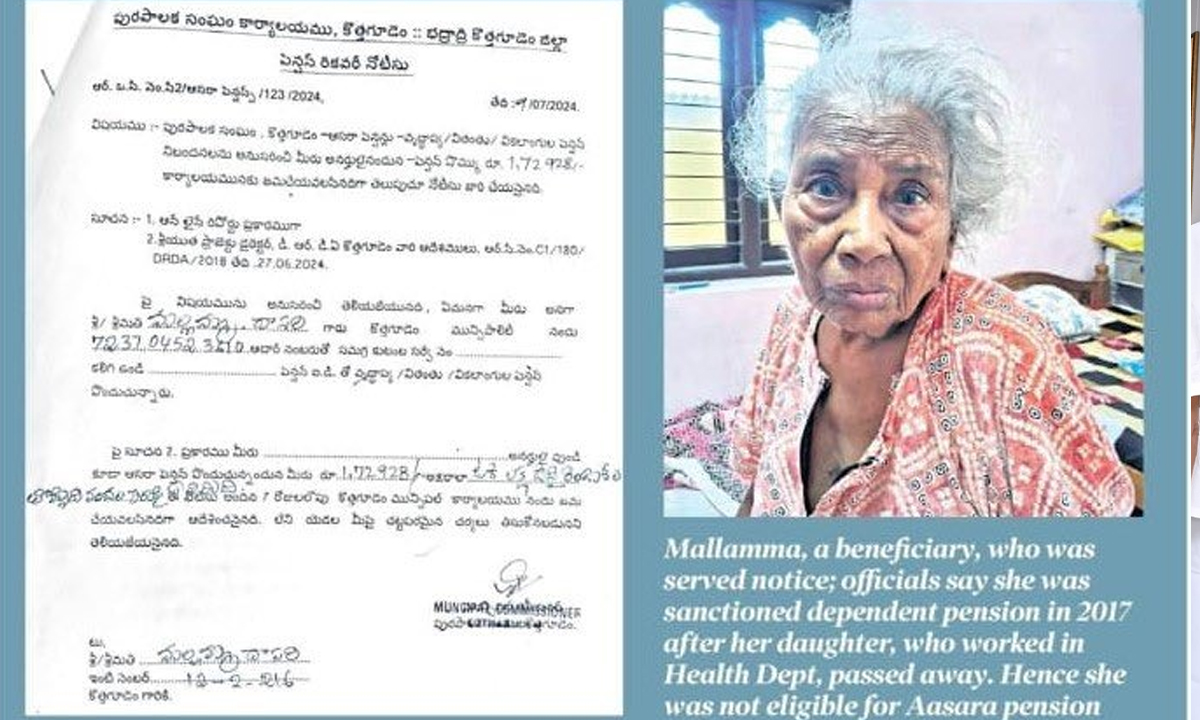 పురపాలక సంఘం కార్యాలయము, కొత్తగూడెం :: భద్రాద్రి కొత్తగూడెం జిల్లా
పెన్షన్ రికవరీ నోటీసు
ఆర్. ఒ.సి. నెం.సి2/ఆసరా పెన్షన్స్ /123 /2024, తేది : /07/2024.
విషయము :- పురపాలక సంఘం , కొత్తగూడెం -ఆసరా పెన్షన్లు -వృద్ధాప్య/వితంతు/ వికలాంగుల పెన్షన్
నిబందనలను అనుసరించి మీరు అనర్హులైనందున -పెన్షన్ సొమ్ము రూ. 1,72,928/-
కార్యాలయమునకు జమచేయవలసినదిగా తెలుపుచూ నోటీసు జారి చేయనైనది.
సూచన :- 1. ఆన్ లైన్ రిపోర్టు ప్రకారముగా
2.శ్రీయుత ప్రాజెక్టు డైరెక్టర్, డి. ఆర్. డి.ఏ కొత్తగూడెం వారి ఆదేశములు, ఆర్.సి.నెం.C1/180/
DRDA/2018 తేది .27.06.2024.
పై విషయమును అనుసరించి తెలియజేయునది, ఏమనగా మీరు అనగా
శ్రీ/ శ్రీమతి మల్లమ్మ దాసరి గారు కొత్తగూడెం మున్సిపాలిటీ నందు
ఆధార్ నంబరుతో సమగ్ర కుటుంబ సర్వే నెం
కలిగి ఉండి పెన్షన్ ఐ.డి. తో వృద్ధాప్య /వితంతు /వికలాంగుల పెన్షన్
పొందుచున్నారు.
పై సూచన 2. ప్రకారము మీరు అనర్హులై వుండి
కూడా ఆసరా పెన్షన్ పొందుచున్నందున మీరు రూ.1,72,928/- అక్షరాలా ఒక లక్ష డెబ్బై రెండువేల
ఈ నోటీసు అందిన 7 రోజులలోపు కొత్తగూడెం మున్సిపల్ కార్యాలయము నందు జమ
చేయవలసినదిగా ఆదేశించనైనది. లేని యెడల మీపై చట్టపరమైన చర్యలు తీసుకోనబడునని
తెలియజేయనైనది.
MUNICIPAL COMMISSIONER
టు,
శ్రీ/శ్రీమతి మల్లమ్మ దాసరి
ఇంటి నంబర్ 12-2-216
కొత్తగూడెం గారికి.
Mallamma, a beneficiary, who was
served notice; officials say she was
sanctioned dependent pension in 2017
after her daughter, who worked in
Health Dept, passed away. Hence she
was not eligible for Aasara pension